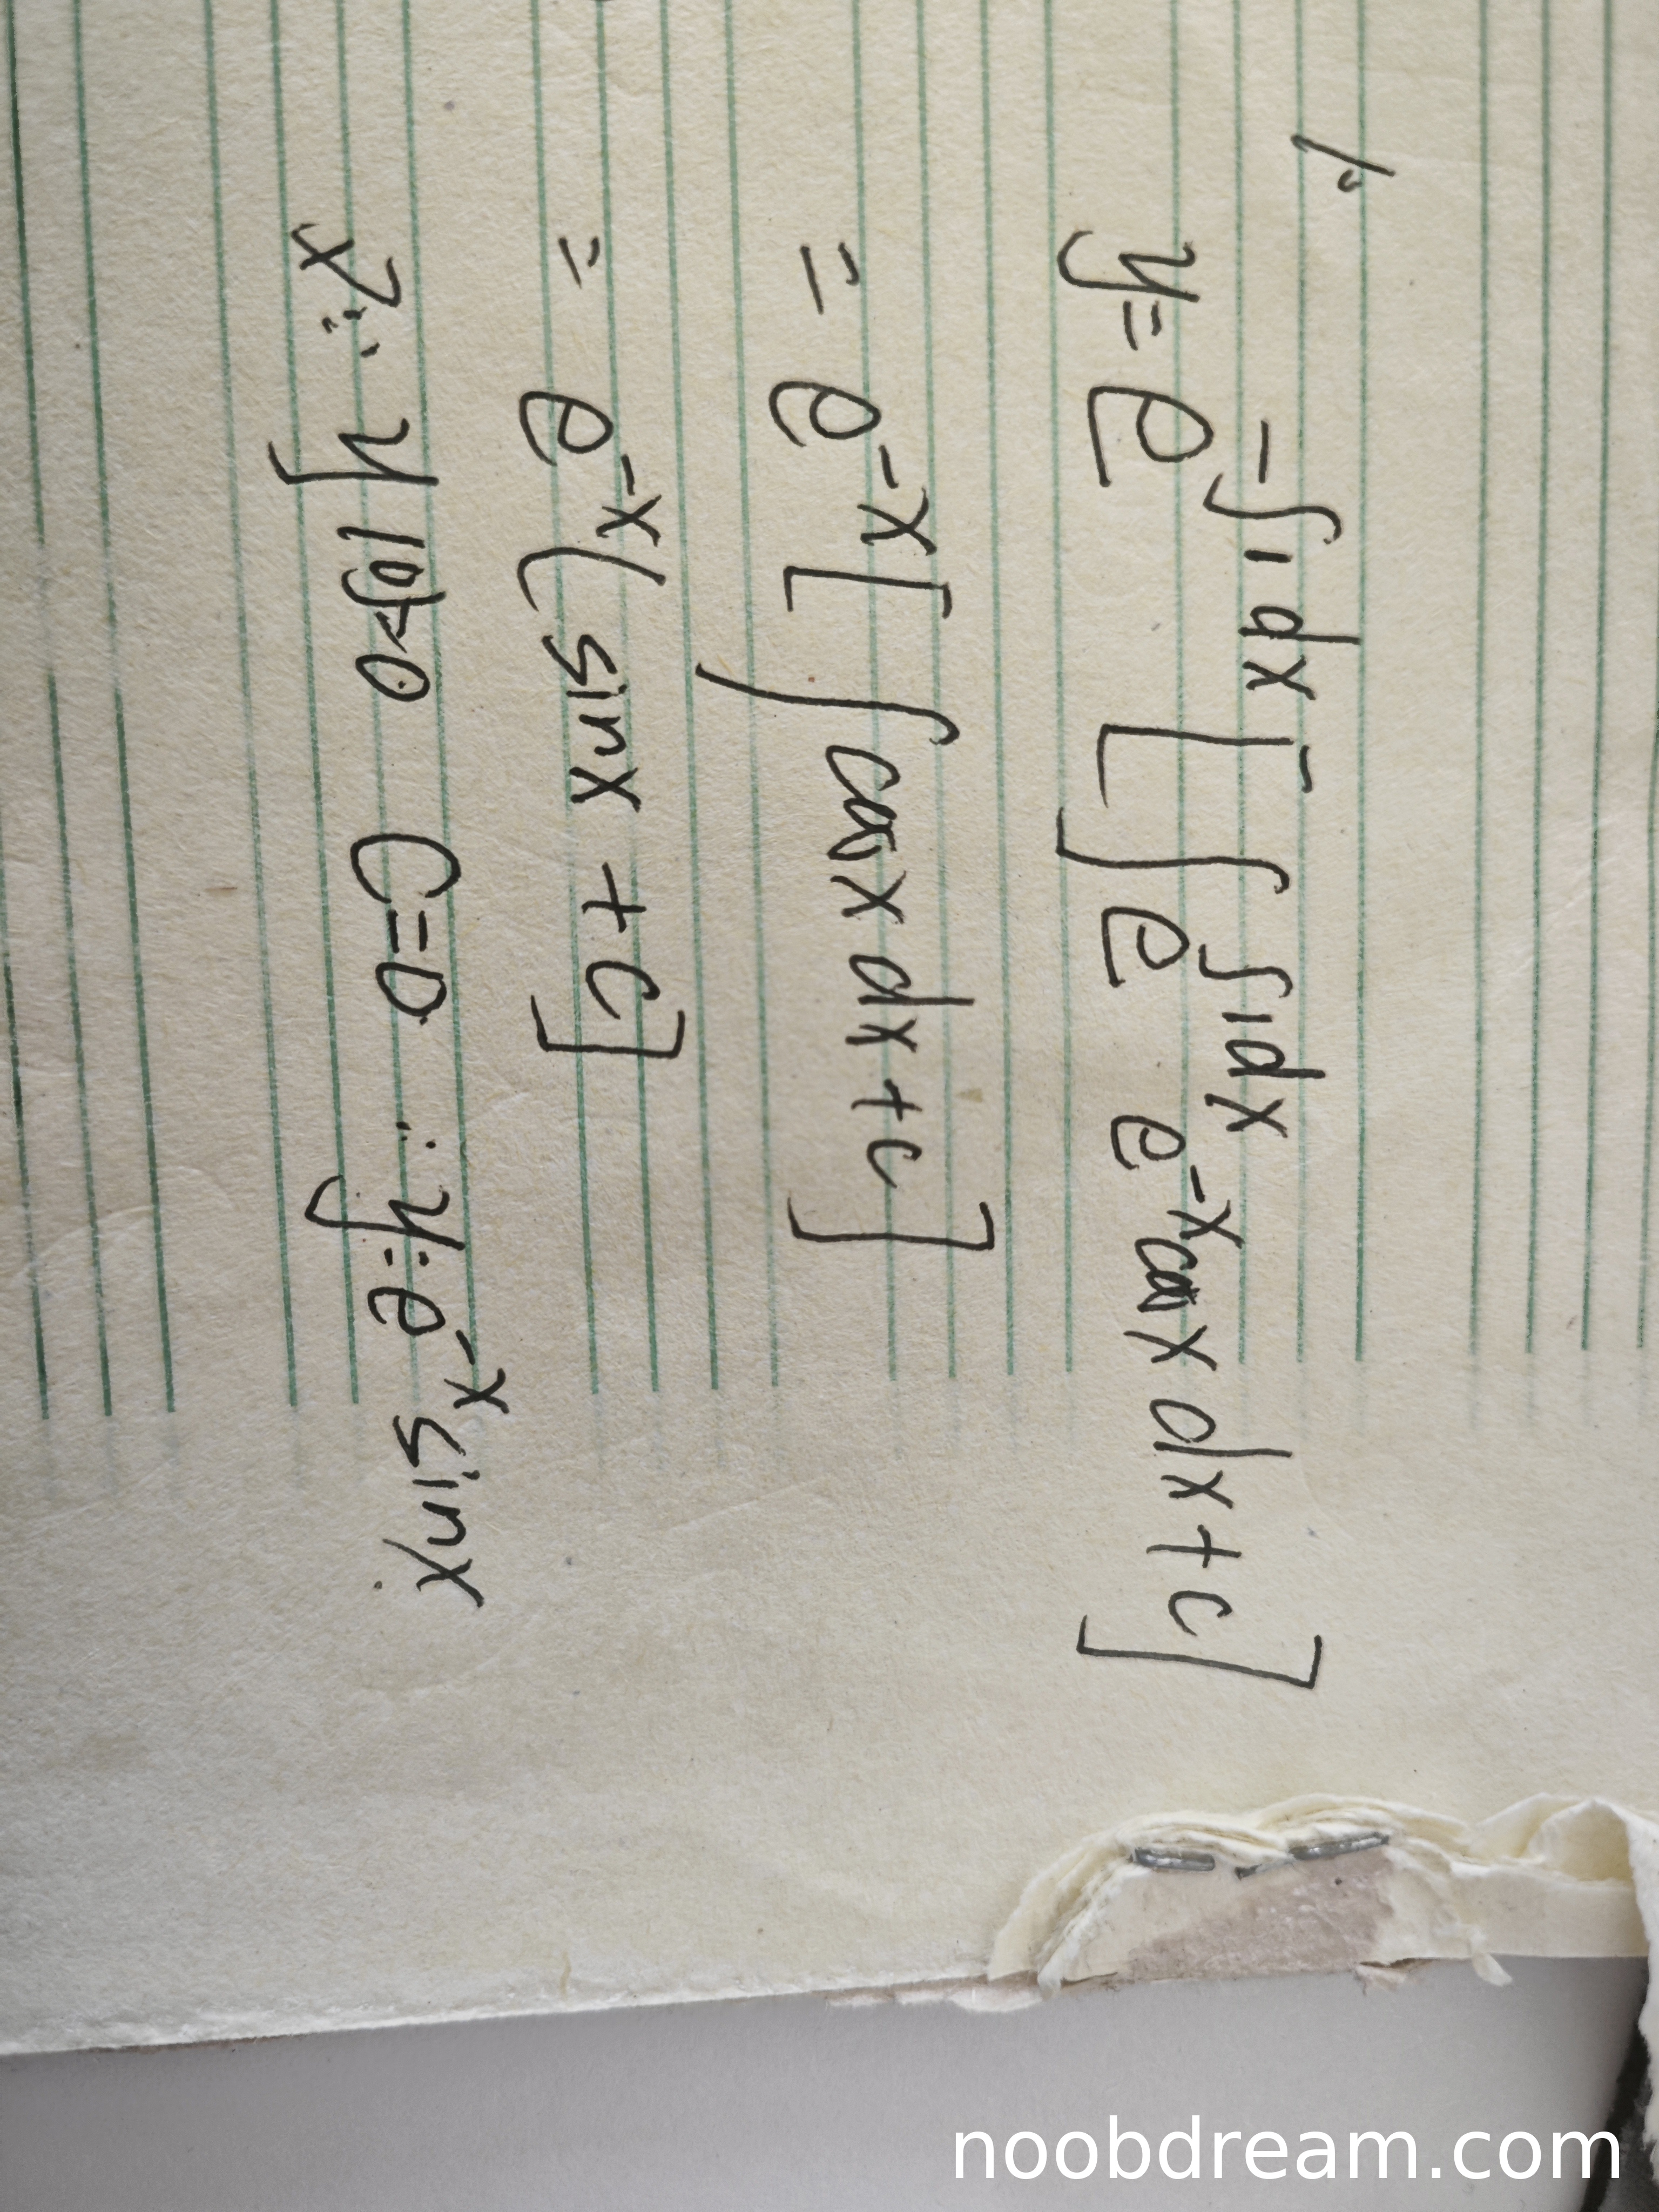 1.
y = e^{-∫1dx} [∫ e^{∫1dx} e^{-x} cosx dx + c]
= e^{-x} [∫ cosx dx + c]
= e^{-x} (sinx + c]
又∵ y(0)=0 C=0 ∴ y=e^{-x} sinx
noobdream.com